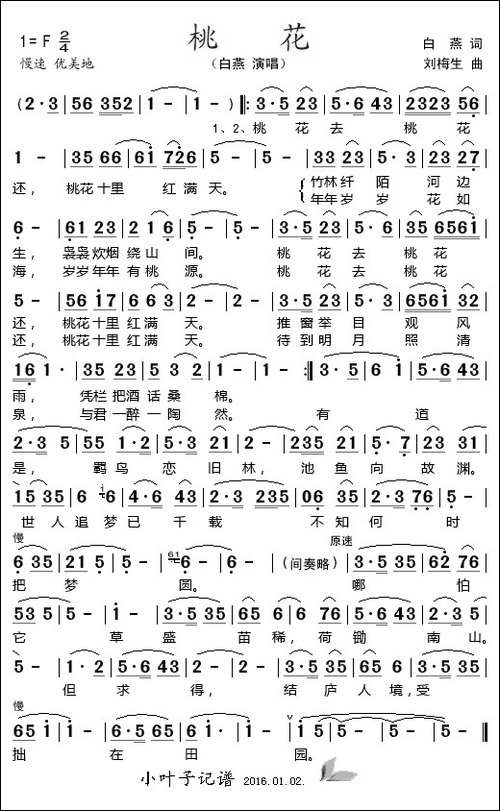 桃 花
1=F 2/4
白 燕 词
慢速 优美地
（白燕 演唱）
刘梅生 曲
(2·3 | 56 352 | 1 - | 1 - ) |: 3·5 23 | 5·6 43 | 2323 56 |
1、2、桃 花 去 桃 花
1 - | 35 66 | 61 726 | 5 - | 5 - | 33 23 | 5· 3 | 23 27 |
还， 桃花 十里 红 满 天。 竹林 纤 陌 河 边
年年 岁 岁 花 如
6 - | 61 23 | 2 1 6 | 5 - | 5 - | 3·5 23 | 5·6 43 | 35 6561 |
生， 袅袅 炊烟 绕 山 间。 桃 花 去 桃 花
海， 岁岁 年年 有 桃 源。 桃 花 去 桃 花
5 - | 56 17 | 6 6 3 | 2 - | 2 - | 3·5 23 | 5·6 43 | 6561 32 |
还， 桃花 十里 红 满 天。 推 窗 举 目 观 风
还， 桃花 十里 红 满 天。 待 到 明 月 照 清
16 1· | 35 23 | 5 3 2 | 1 - | 1 - :| 3·5 | 6 1 | 5·6 43 |
雨， 凭栏 把酒 话 桑 棉。
泉， 与君 一醉 一 陶 然。 有 道
2·3 55 | 5 - | 2·3 5 | 35 21 | 2 - | 235 21 | 5· 7 | 23 31 |
是， 羁 鸟 恋 旧 林， 池 鱼 向 故 渊。
15 35 | 6 6 | 4·6 43 | 2·3 235 | 06 35 | 2·3 76 | 5 - |
世 人 追 梦 已 千 载 不 知 何 时
慢
原速
6 35 | 21 5 | 5 - | 6 - | 6 - | （间奏略） | 3·5 35 | 62 76 |
把 梦 圆。 哪 怕
53 5 | 5 - | 1 - | 3·5 35 | 65 6 | 6 76 | 5·6 43 | 2·3 21 |
它 草 盛 苗 稀， 荷 锄 南 山。
5 - | 1· 2 | 5·6 43 | 2 - | 3·5 35 | 1 6· | 5·6 53 | 2· 3 |
但 求 得， 结 庐 人 境， 受
慢
65 1 | 2 - | 3·5 35 | 6 1· | 1 - | 15 | 5 - | 5 - | 5 - ||
拙 在 田 园。
小叶子记谱 2016.01.02.